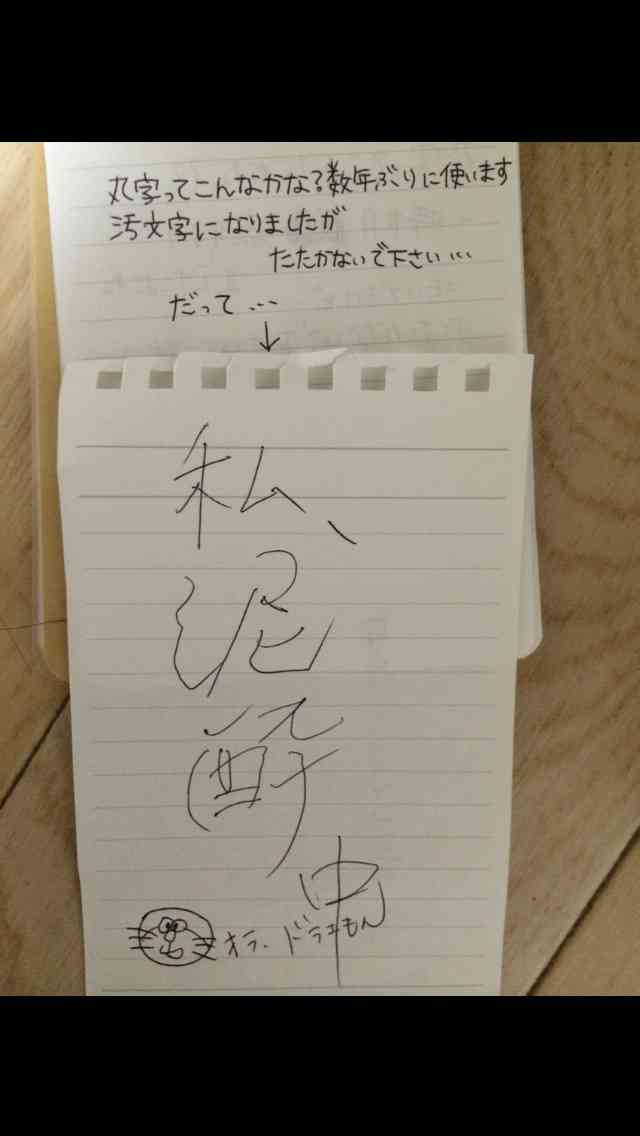 丸字ってこんなかな？数年ぶりに使います
汚文字になりましたが
たたかないで下さい…
だって…
↓
私、
泥
酔
中
オラ、ドラえもん